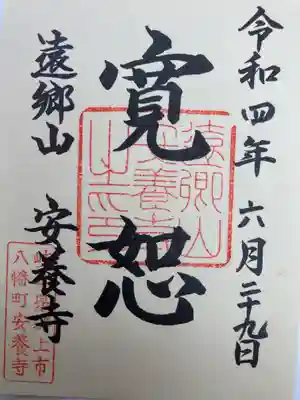 令和四年 六月二十九日
寛恕
遠郷山 安養寺
遠郷山
安養寺
之印
岐阜県郡上市
八幡町安養寺